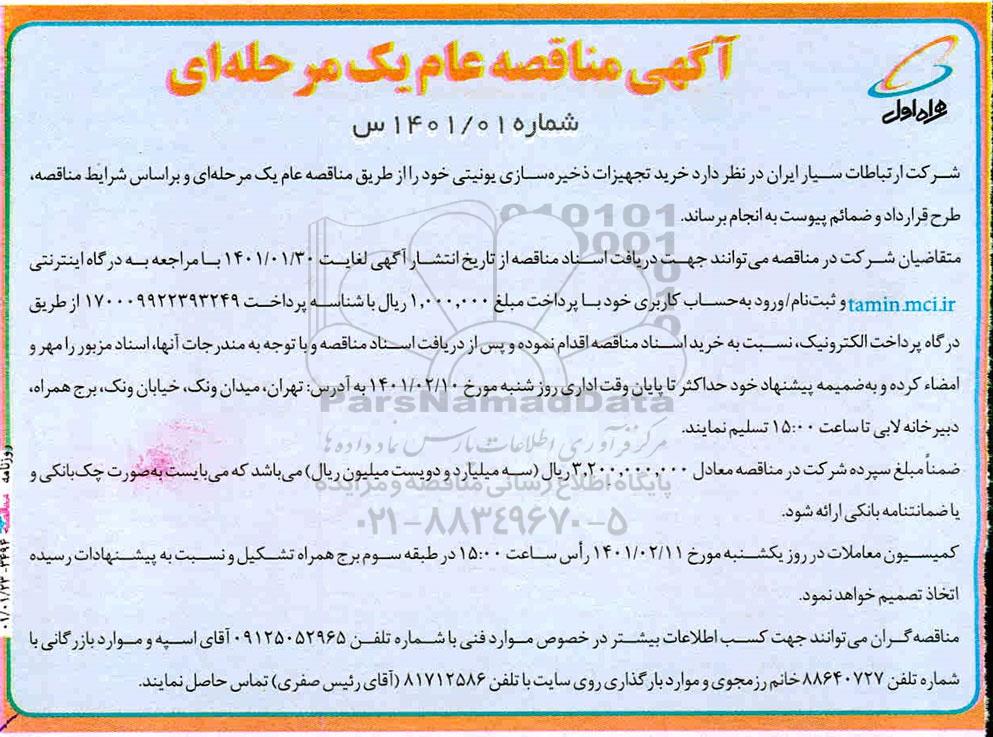 همراه اول
آگهی مناقصه عام یک مرحله‌ای
شماره ۱۴۰۱/۰۱ س
شرکت ارتباطات سیار ایران در نظر دارد خرید تجهیزات ذخیره‌سازی یونیتی خود را از طریق مناقصه عام یک مرحله‌ای و براساس شرایط مناقصه،
طرح قرارداد و ضمائم پیوست به انجام برساند.
متقاضیان شرکت در مناقصه می‌توانند جهت دریافت اسناد مناقصه از تاریخ انتشار آگهی لغایت ۱۴۰۱/۰۱/۳۰ با مراجعه به درگاه اینترنتی
tamin.mci.ir و ثبت‌نام/ورود به‌حساب کاربری خود با پرداخت مبلغ ۱,۰۰۰,۰۰۰ ریال با شناسه پرداخت ۱۷۰۰۰۹۹۲۲۳۹۳۲۴۹ از طریق
درگاه پرداخت الکترونیک، نسبت به خرید اسناد مناقصه اقدام نموده و پس از دریافت اسناد مناقصه و با توجه به مندرجات آنها، اسناد مزبور را مهر و
امضاء کرده و به‌ضمیمه پیشنهاد خود حداکثر تا پایان وقت اداری روز شنبه مورخ ۱۴۰۱/۰۲/۱۰ به آدرس: تهران، میدان ونک، خیابان ونک، برج همراه،
دبیرخانه لابی تا ساعت ۱۵:۰۰ تسلیم نمایند.
ضمناً مبلغ سپرده شرکت در مناقصه معادل ۳,۲۰۰,۰۰۰,۰۰۰ ریال (سه میلیارد و دویست میلیون ریال) می‌باشد که می‌بایست به‌صورت چک‌بانکی و
یا ضمانتنامه بانکی ارائه شود.
کمیسیون معاملات در روز یکشنبه مورخ ۱۴۰۱/۰۲/۱۱ رأس ساعت ۱۵:۰۰ در طبقه سوم برج همراه تشکیل و نسبت به پیشنهادات رسیده
اتخاذ تصمیم خواهد نمود.
مناقصه‌گران می‌توانند جهت کسب اطلاعات بیشتر در خصوص موارد فنی با شماره تلفن ۰۹۱۲۵۰۵۲۹۶۵ آقای اسپه و موارد بازرگانی با
شماره تلفن ۸۸۶۴۰۷۲۷ خانم رزمجوی و موارد بارگذاری روی سایت با تلفن ۸۱۷۱۲۵۸۶ (آقای رئیس صفری) تماس حاصل نمایند.
ParsNamadData
مرکز فرآوری اطلاعات پارس نماد داده‌ها
پایگاه اطلاع رسانی مناقصه و مزایده
۰۲۱-۸۸۳۴۹۶۷۰-۵
روزنامه